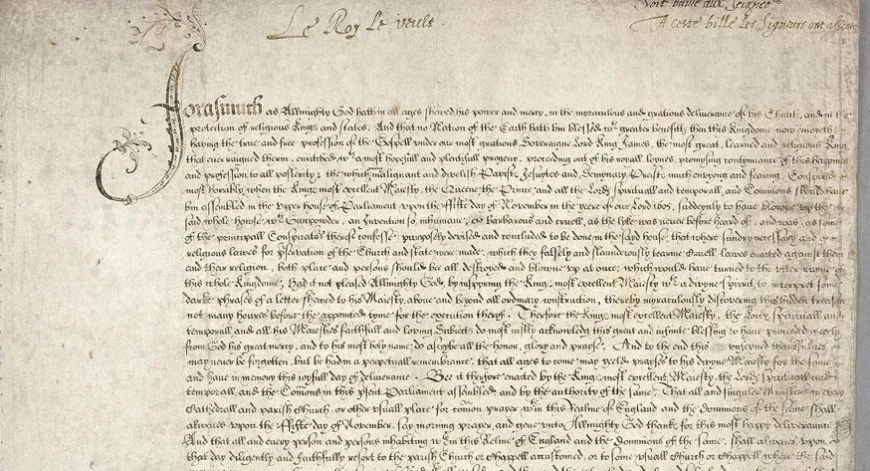 Soit baille aux Seigne
Le Roy le veult.
A ceste bille les Signeurs ont
Forasmuch as Allmighty God hath in all ages shewed his power and mercy, in the myraculous and gratious deliverance of his Church, and in the
protection of religious Kings and states. And that no Nation of the Earth hath bin blessed wth greater benefitts then this Kingdome now enioyeth
having the true and free profession of the Gospell under our most gratious Soveraigne Lord King James, the most great, learned and religious King
that ever raigned therein, enritched wth a most hopefull and plentifull progeny, proceeding out of his royall loynes, promysing contynuance of this happines
and profession to all posterity: the which malignant and divelish Papists, Jesuytes and Semynary Priests much envyeng and fearing, Conspired
most horribly when the Kings most excellent Maiesty, the Queene the Prince and all the Lords spirituall and temporall, and Commons should have
bin assembled in the upper house of Parliament upon the fifte day of November in the yeere of our Lord 1605, suddeynly to have blowne up the
said whole howse wth Gunpowder, an Invention so inhumane, barbarous and cruell, as the lyke was never before heard of, and was as some
of the principall Conspirators thereof confesse purposely devised and concluded to be done in the sayd house, that where sundry necessary and
religious lawes for pservation of the Church and state were made, which they falsely and slaunderously tearme Cruell lawes enacted against them
and their religion, both place and persons should bee all distroyed and blowne up at once, which would have turned to the utter ruyne of
this whole Kingdome, Had it not pleased Allmighty God, by inspyring the Kings most excellent Maiesty wth a divyne spirit, to interpret some
darke phrases of a letter shewed to his Maiesty, above and beyond all ordinary construction, thereby myraculously discovering this hidden treason
not many howres before the appointed tyme for the execution therof. Therfore the Kings most excellent Maiesty, the Lords spirituall and
temporall, and all his Maiesties faithfull and loving Subiects do most iustly acknowledg this great and infinite blessing to have proceeded meerly
from God his great mercy, and to his most holy name do ascrybe all the honor, glory and prayse. And to the end this unfeyned thankfulnes
may never be forgotten, but be had in a perpetuall remembrance, that all ages to come may yeeld prayses to his divyne Maiesty for the same
and have in memory this ioyfull day of deliverance. Bee it therfore enacted by the Kings most excellent Maiesty, the Lords spirituall and
temporall, and the Comons in this psent Parliament assembled, and by the authority of the same, That all and singuler Ministers in every
Cathedrall and parish Church or other usuall place for comon prayer wthin this Realme of England and the Dominions of the same shall
alwaies upon the fifte day of November, say morning prayer, and geve unto Allmighty God thanks for this most happy deliverance
And that all and every person and persons inhabiting wthin this Realme of England and the Dominions of the same, shall alwaies upon
that day diligently and faithfully resort to the parish Church or Chappell accustomed, or to some usuall Church or Chappell where the said